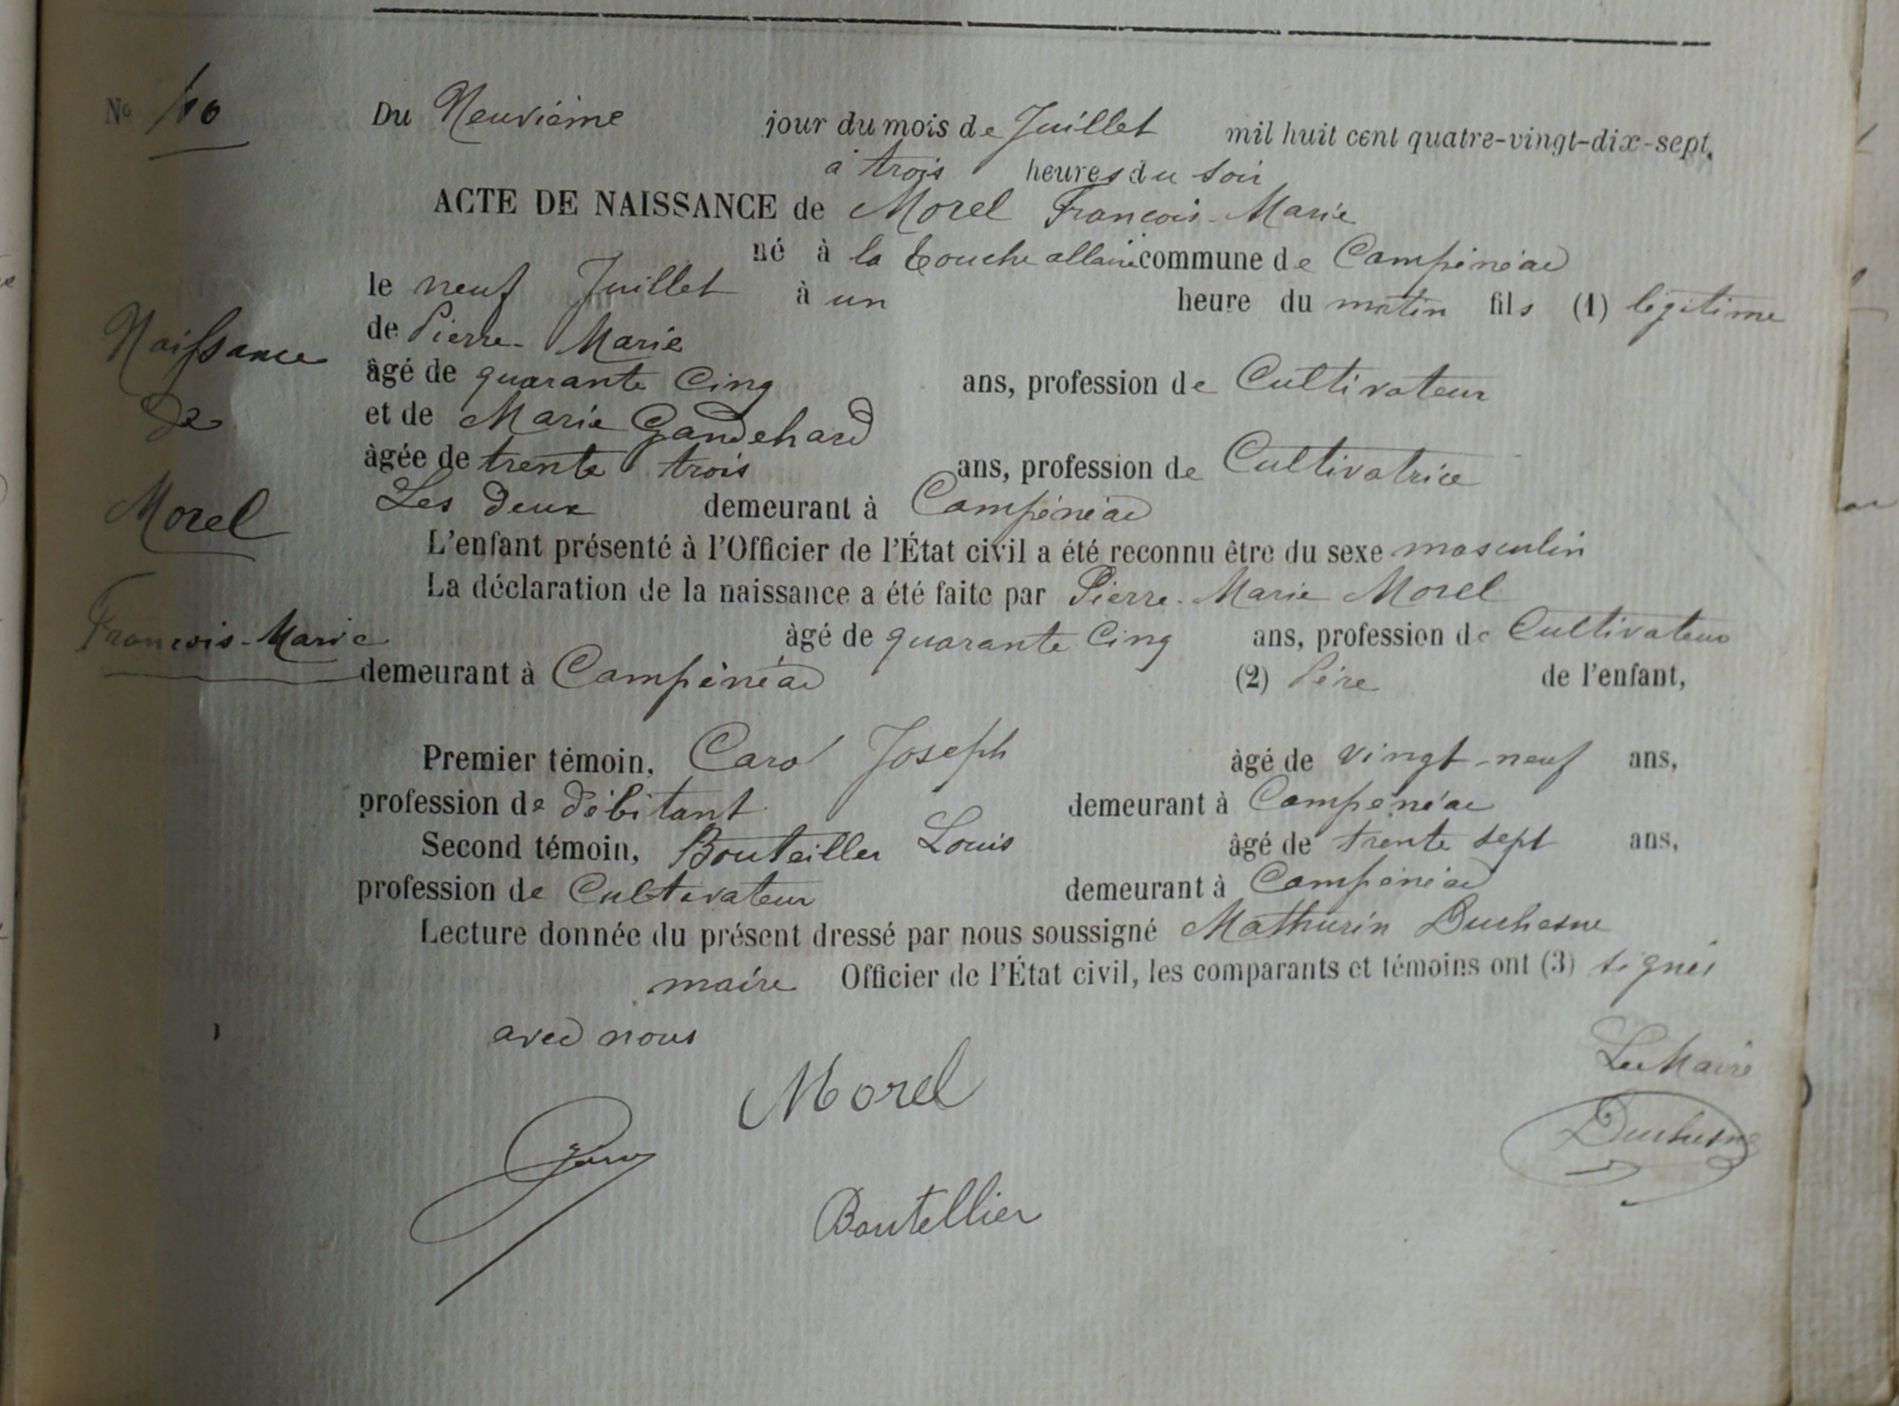 No 40
Du Neuvième jour du mois de Juillet mil huit cent quatre-vingt-dix-sept,
à trois heures du soir
ACTE DE NAISSANCE de Morel François-Marie
né à la touche allaire commune de Campénéac
le neuf Juillet à un heure du matin fils (1) légitime
de Pierre-Marie
âgé de quarante Cinq ans, profession de Cultivateur
et de Marie Gandehard
âgée de trente trois ans, profession de Cultivatrice
Les deux demeurant à Campénéac
L'enfant présenté à l'Officier de l'État civil a été reconnu être du sexe masculin
La déclaration de la naissance a été faite par Pierre-Marie Morel
âgé de quarante Cinq ans, profession de Cultivateur
demeurant à Campénéac (2) Père de l'enfant,
Premier témoin, Caro Joseph âgé de vingt-neuf ans,
profession de débitant demeurant à Campénéac
Second témoin, Bouteiller Louis âgé de trente sept ans,
profession de Cultivateur demeurant à Campénéac
Lecture donnée du présent dressé par nous soussigné Mathurin Duchesne
maire Officier de l'État civil, les comparants et témoins ont (3) signés
avec nous
Naissance
de
Morel
François-Marie
Le Maire
Morel
Duchesne
Caro
Boutellier